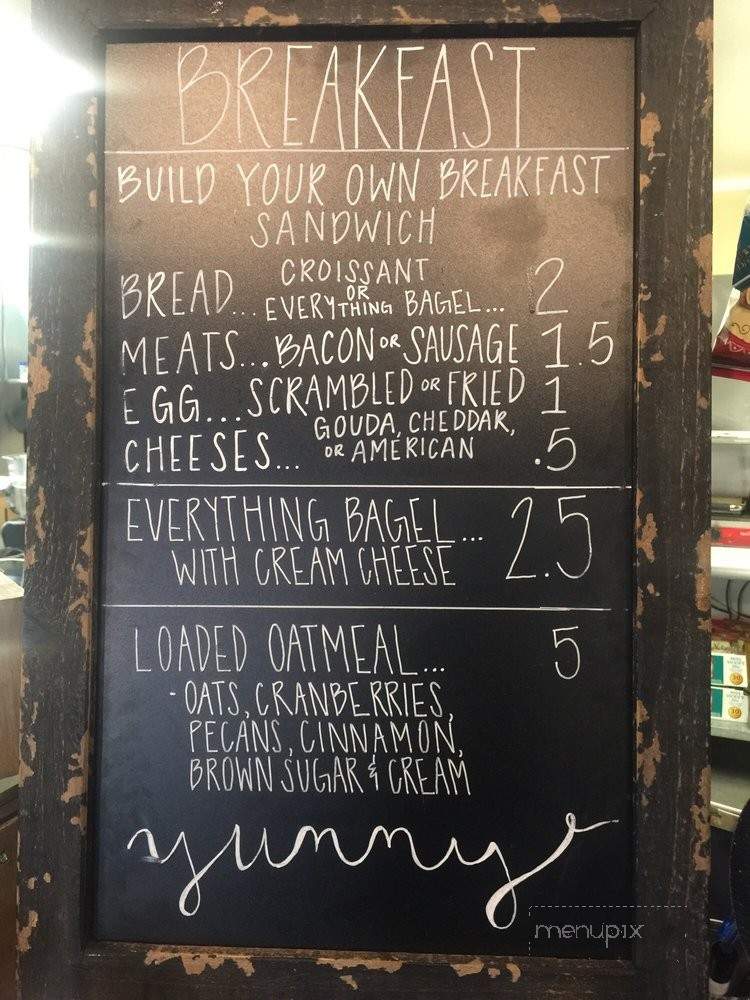 BREAKFAST
BUILD YOUR OWN BREAKFAST
SANDWICH
BREAD... CROISSANT OR EVERYTHING BAGEL... 2
MEATS... BACON OR SAUSAGE 1.5
EGG... SCRAMBLED OR FRIED 1
CHEESES... GOUDA, CHEDDAR, OR AMERICAN .5
EVERYTHING BAGEL... 2.5
WITH CREAM CHEESE
LOADED OATMEAL... 5
- OATS, CRANBERRIES,
PECANS, CINNAMON,
BROWN SUGAR & CREAM
yummy
menupix